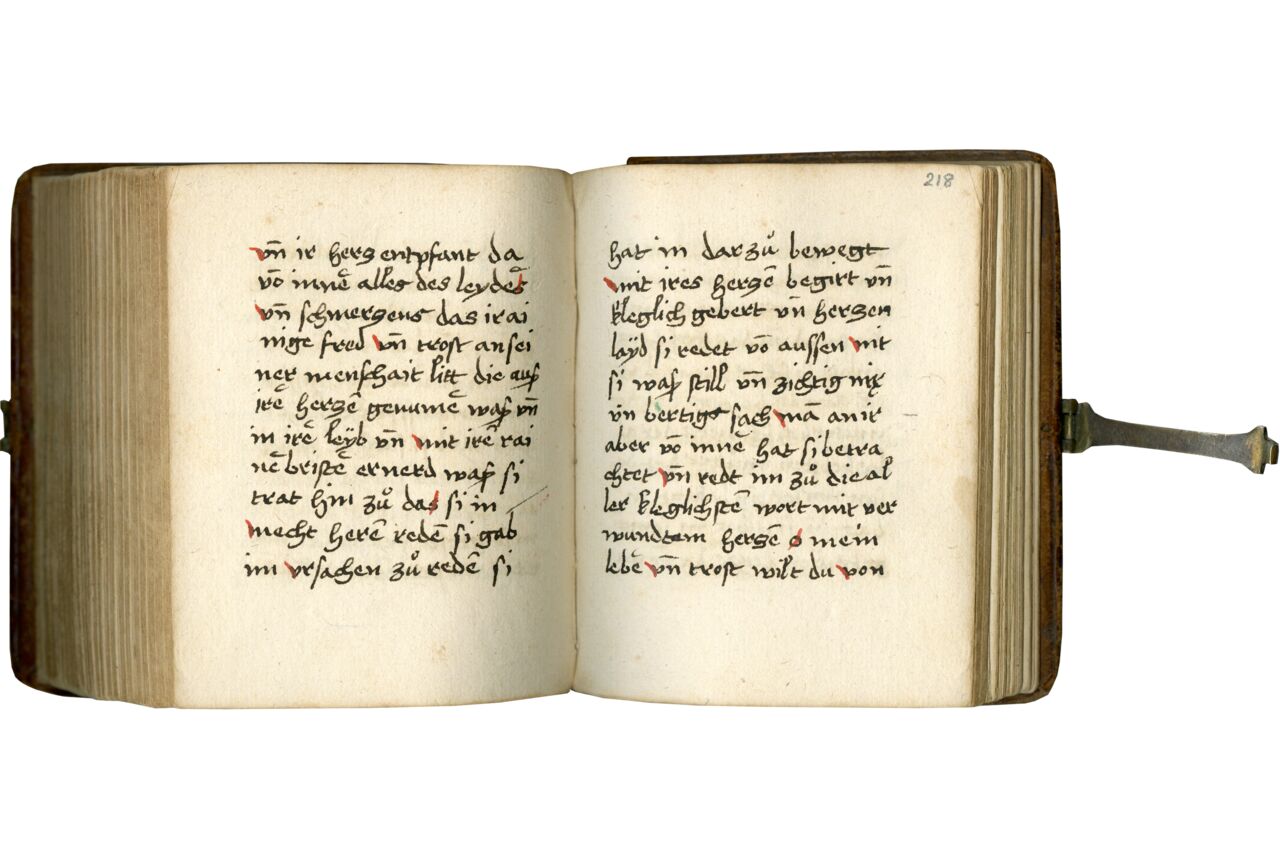 vn̄ ir hercz entpfant da
vō innē alles des leydes
vn̄ schmerczens das ir ai
nige fred vn̄ trost an sei
ner menschait litt die auß
irē herczē genumē waß vn̄
in irē leyb vn̄ mit irē rai
nē bristē ernerd waß si
trat hin zů das si in
mecht herē redē si gab
im vrsachen zů redē si
218
hat in darzů bewegt
mit ires herczē begirt vn̄
kleglich gebert vn̄ herczen
layd si redet vō aussen nit
si waß still vn̄ zichtig
vn̄ bertigs sach mā an ir
aber vō innē hat si betra
chtet vn̄ redt im zů die al
ler kleglichstē wort mit ver
wundtem herczē o mein
lebē vn̄ trost wilt du von